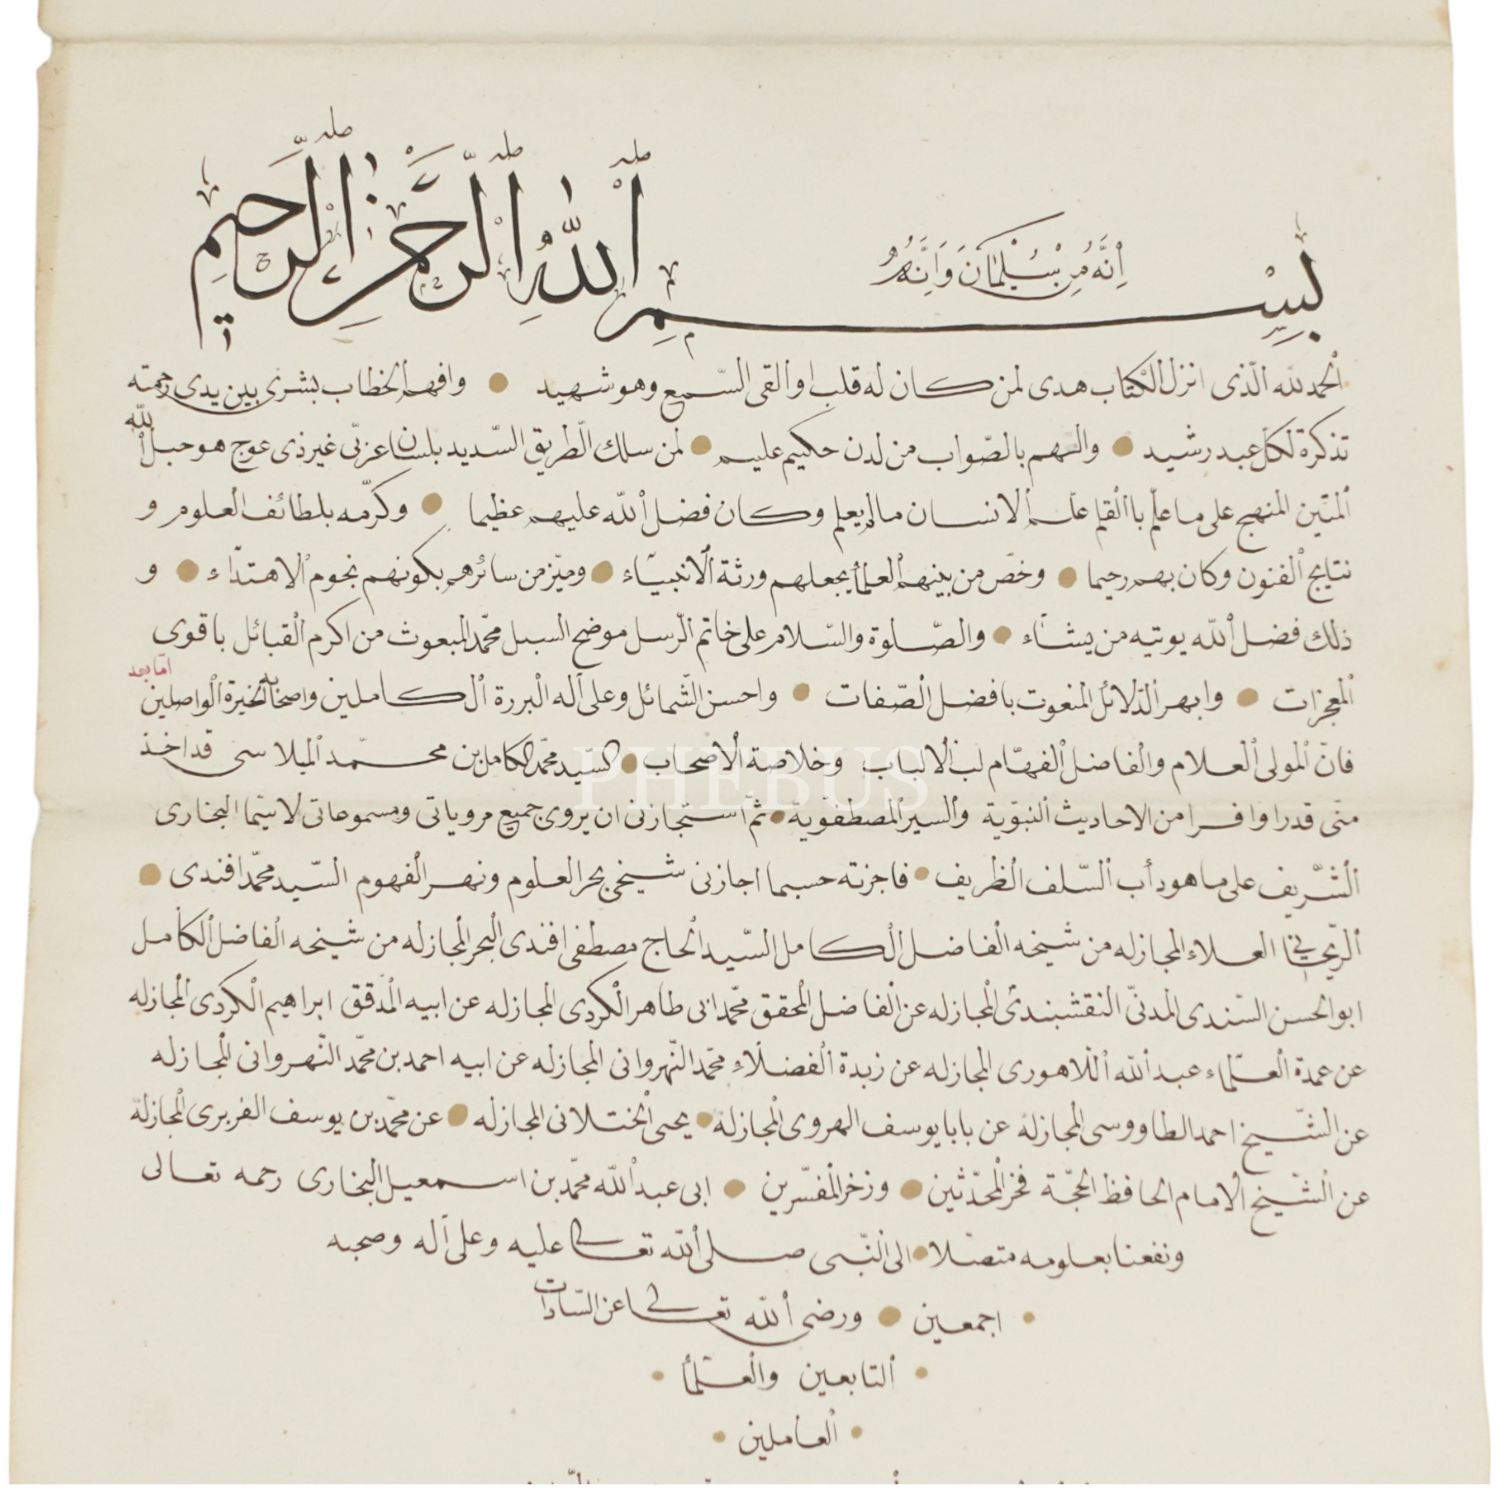 إنه من سليمان وإنه
بسم الله الرحمن الرحيم
الحمد لله الذى انزل الكتاب هدى لمن كان له قلب او القى السمع وهو شهيد وافهم الخطاب بشرى بين يدى رحمته
تذكرة لكل عبد رشيد والهم بالصواب من لدن حكيم عليم لمن سلك الطريق السديد بلسان عربى غير ذى عوج هو حبل الله
المتين المنهج على ما علم بالقلم علم الانسان ما لم يعلم وكان فضل الله عليهم عظيما وكرمه بلطائف العلوم و
نتايج الفنون وكان بهم رحيما وخص من بينهم العلمأ بجعلهم ورثة الانبياء وميز من سائرهم بكونهم نجوم الاهتداء و
ذلك فضل الله يوتيه من يشاء والصلوة والسلام على خاتم الرسل موضح السبل محمد المبعوث من اكرم القبائل باقوى
المعجزات وابهر الدلائل المنعوت بافضل الصفات واحسن الشمائل وعلى آله البررة الكاملين واصحابه الخيرة الواصلين اما بعد
فان المولى العلام والفاضل الفهام لب الالباب وخلاصة الاصحاب السيد محمد الكامل بن محمد قد اخذ
منى قدرا وافرا من الاحاديث النبوية والسير المصطفوية ثم استجازنى ان يروى جميع مروياتى ومسموعاتى لا سيما البخارى
الشريف على ما هو دأب السلف الظريف فاجزته حسبما اجازنى شيخى بحر العلوم ونهر الفهوم السيد محمد افندى
العلاء المجاز له من شيخه الفاضل الكامل السيد الحاج مصطفى افندى المجاز له من شيخه الفاضل الكامل
ابو الحسن السندى المدنى النقشبندى المجاز له عن الفاضل المحقق محمد ابى طاهر الكردى المجاز له عن ابيه المدقق ابراهيم الكردى المجاز له
عن عمدة العلماء عبد الله اللاهورى المجاز له عن زبدة الفضلاء محمد النهروانى المجاز له عن ابيه احمد بن محمد النهروانى المجاز له
عن الشيخ احمد الطاووسى المجاز له عن بابا يوسف الهروى المجاز له يحيى الختلانى المجاز له عن محمد بن يوسف الفربرى المجاز له
عن الشيخ الامام الحافظ الحجة فخر المحدثين وزخر المفسرين ابى عبد الله محمد بن اسمعيل البخارى رحمه تعالى
ونفعنا بعلومه متصلا الى النبى صلى الله تعالى عليه وعلى آله وصحبه
اجمعين ورضى الله تعالى عن السادات
التابعين والعلمأ
العاملين
PHEBUS